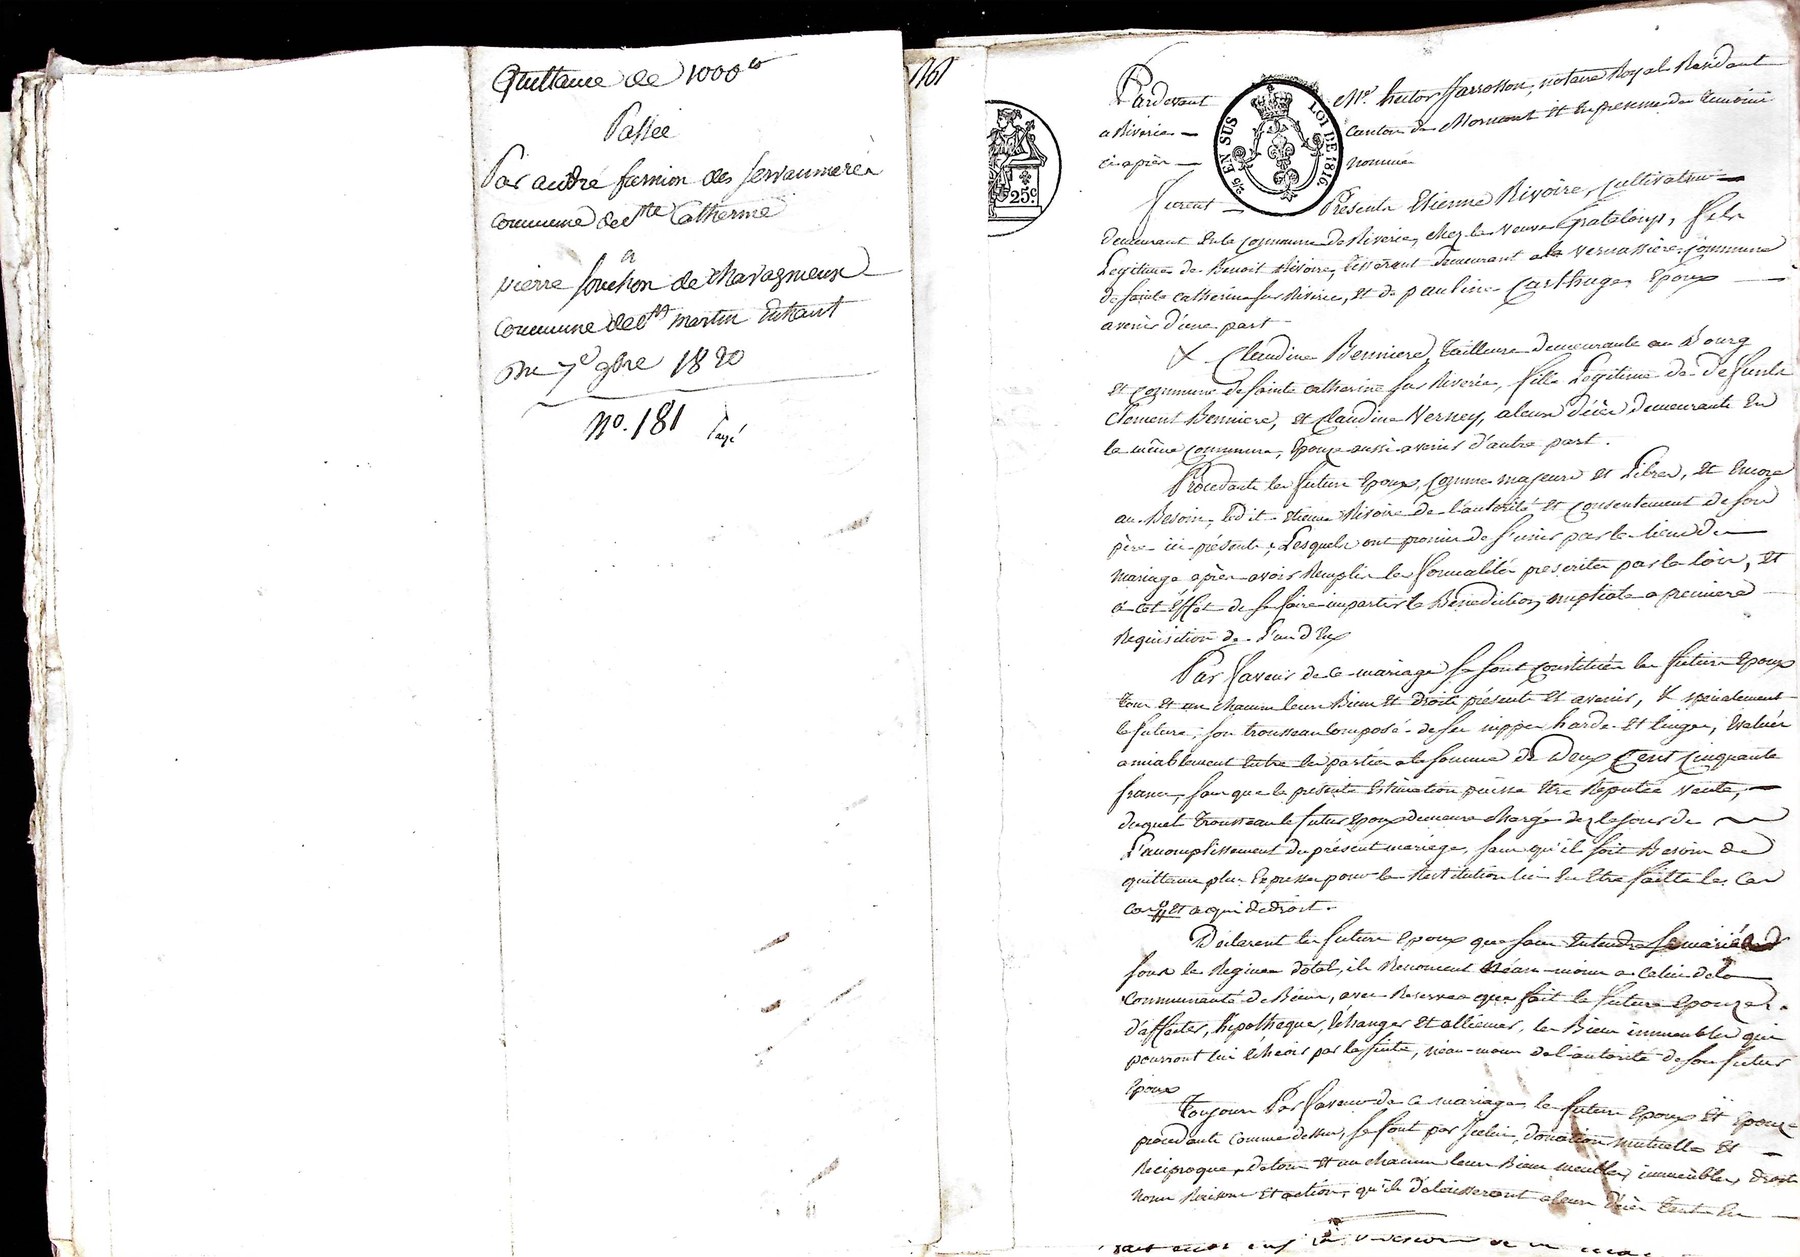 Quittance de 1000 fr
Passée
Par andré
commune de Ste Catherine
a
pierre souchon de chavagnieux
commune de St martin
Du 7e 9bre 1820
No. 181 payé
161
25c.
EN SUS LOI DE 1816
Pardevant Me. hector Jarrosson, notaire Royal Residant
a Riverie canton de Mornant et En presence des temoins
ci après nommés
furent Présents Etienne Rivoire, Cultivateur
demeurant En la commune de Riverie, chez la veuve Grateloup, fils
Legitime de Benoit Rivoire, tisserant demeurant a la vernassière commune
de sainte catherine sur Riverie, et de pauline Epoux
avenir d'une part
& Claudine Benniere, tailleuse demeurante au Bourg
et commune de sainte catherine sur Riverie, fille Legitime de defunts
Clement Benniere, et Claudine Verney, a leurs décès demeurants En
la même commune, Epouse aussi avenir d'autre part.
Procedants les futurs Epoux, comme majeurs et Libres, et Encore
au Besoin, ledit Etienne Rivoire de l'autorité et consentement de son
père ici présent, Lesquels ont promis de s'unir par le lien du
mariage après avoir Remplis les formalités prescrites par la loi, et
a cet Effet de se faire impartir la Bénédiction nuptiale a premiere
Requisition de L'un d'Eux
Par faveur de ce mariage se sont constitués les futurs Epoux
tous et un chacun leurs Biens et droits présents et avenir, & specialement
la future, son trousseau composé de ses nippes hardes et linges, Evalués
amiablement Entre les parties a la somme de Deux Cent Cinquante
francs, sans que la présente Estimation puisse Etre Reputée vente,
duquel trousseau le futur Epoux demeure chargé dez le jour de
L'accomplissement du présent mariage, sans qu'il soit Besoin de
quittance plus Expresse pour la Restitution lui En Etre faitte le cas
et a qui de droit.
Declarent les futurs Epoux que sans Entendre se marier
sous le Regime dotal, ils Renoncent Néan-moins a celui de la
communauté de Biens, avec Reserve que fait la future Epouze
d'affecter, hipothequer, Echanger et alliener, les Biens immeubles qui
pourront lui Echeoir par la suite, néan-moins de l'autorité de son futur
Epoux
Toujours Par faveur de ce mariage les futurs Epoux et Epouze
procedants comme dessus, se font par donation mutuelle et
Reciproque, de tous et un chacun leurs Biens meubles, immeubles, droits
noms Raisons et actions, qu'ils délaisseront a leurs décès tant En